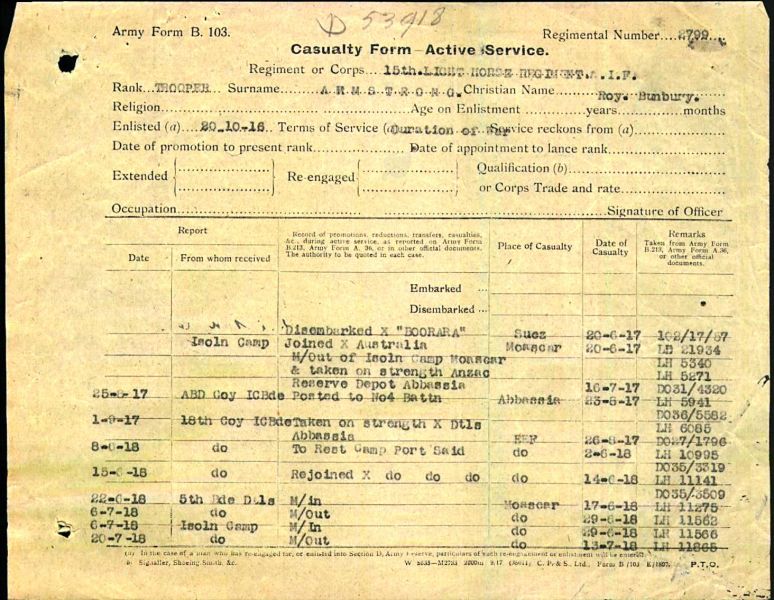 D 53918
Army Form B. 103. Regimental Number 2799
Casualty Form—Active Service.
Regiment or Corps 15th. LIGHT HORSE REGIMENT. A. I. F.
Rank TROOPER Surname ARMSTRONG. Christian Name Roy. Bunbury.
Religion Age on Enlistment years months
Enlisted (a) 20.10-16 Terms of Service (a) Duration of War Service reckons from (a)
Date of promotion to present rank Date of appointment to lance rank
Extended Re-engaged Qualification (b)
or Corps Trade and rate
Occupation Signature of Officer
Report
Date From whom received
Record of promotions, reductions, transfers, casualties,
&c., during active service, as reported on Army Form
B.213, Army Form A. 36, or in other official documents.
The authority to be quoted in each case.
Place of Casualty
Date of
Casualty
Remarks
Taken from Army Form
B.213, Army Form A.36,
or other official
documents.
Embarked ...
Disembarked ...
Disembarked X "BOORARA" Suez 20-6-17 102/17/57
Isoln Camp Joined X Australia Moascar 20-6-17 LH 21934
M/Out of Isoln Camp Moascar LH 5340
& taken on strength Anzac LH 5271
Reserve Depot Abbassia 16-7-17 DO31/4320
25-8-17 ABD Coy ICBde Posted to No4 Battn Abbassia 23-8-17 LH 5941
DO36/5582
1-9-17 18th Coy ICBde Taken on strength X Dtls LH 6085
Abbassia EEF 26-8-17 DO27/1796
8-6-18 do To Rest Camp Port Said do 2-6-18 LH 10995
DO35/3319
15-6-18 do Rejoined X do do do do 14-6-18 LH 11141
DO35/3509
22-6-18 5th Bde Dtls M/in Moascar 17-6-18 LH 11275
6-7-18 do M/Out do 29-6-18 LH 11562
6-7-18 Isoln Camp M/In do 29-6-18 LH 11566
20-7-18 do M/Out do 13-7-18 LH 11865
(a) In the case of a man who has re-engaged for, or enlisted into Section D, Army Reserve, particulars of such re-engagement or enlistment will be entered.
b) Signaller, Shoeing Smith, &c. P.T.O.